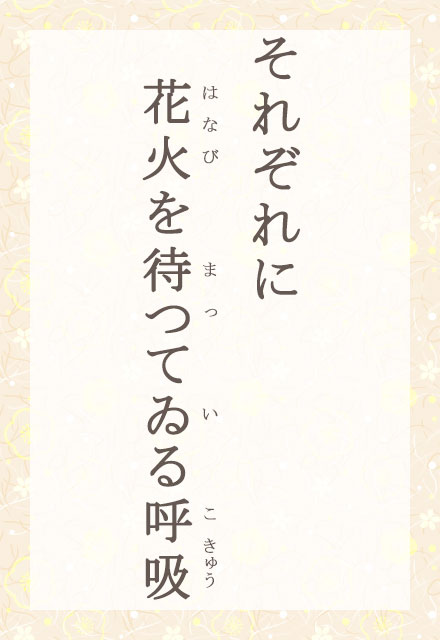 それぞれに
花火を待つてゐる呼吸
はなび まっ い こきゅう